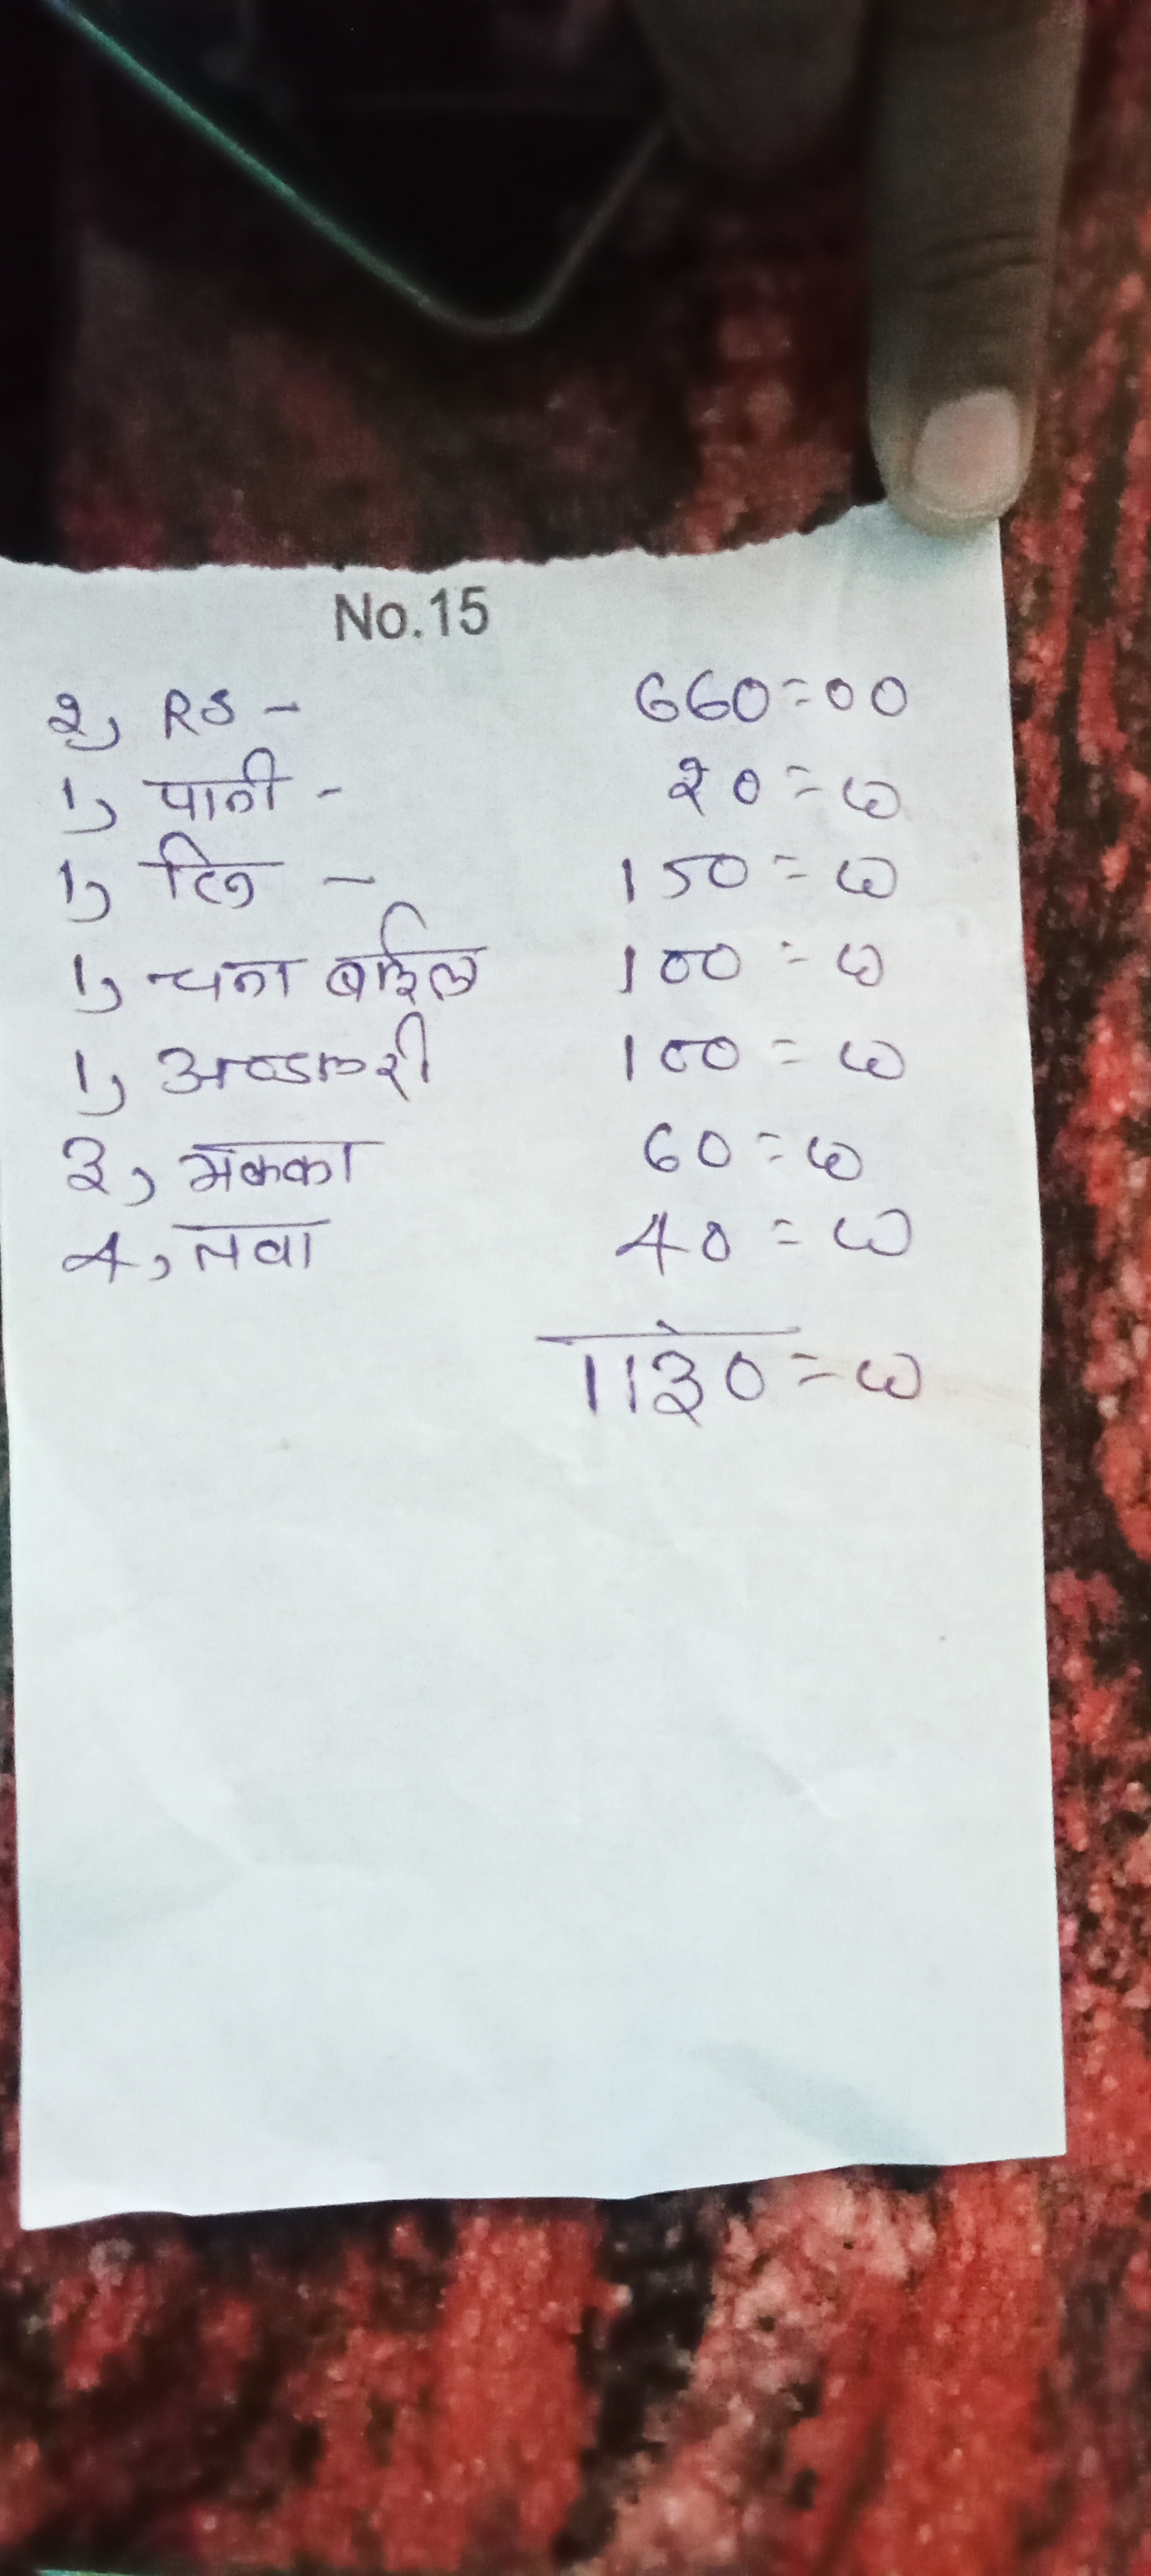 No.15
2, RS - 660=00
1, पानी - 20=00
1, - 150=00
1, चना बाईल 100=00
1, अण्डाकरी 100=00
3, मक्का 60=00
4, तवा 40=00
1130=00